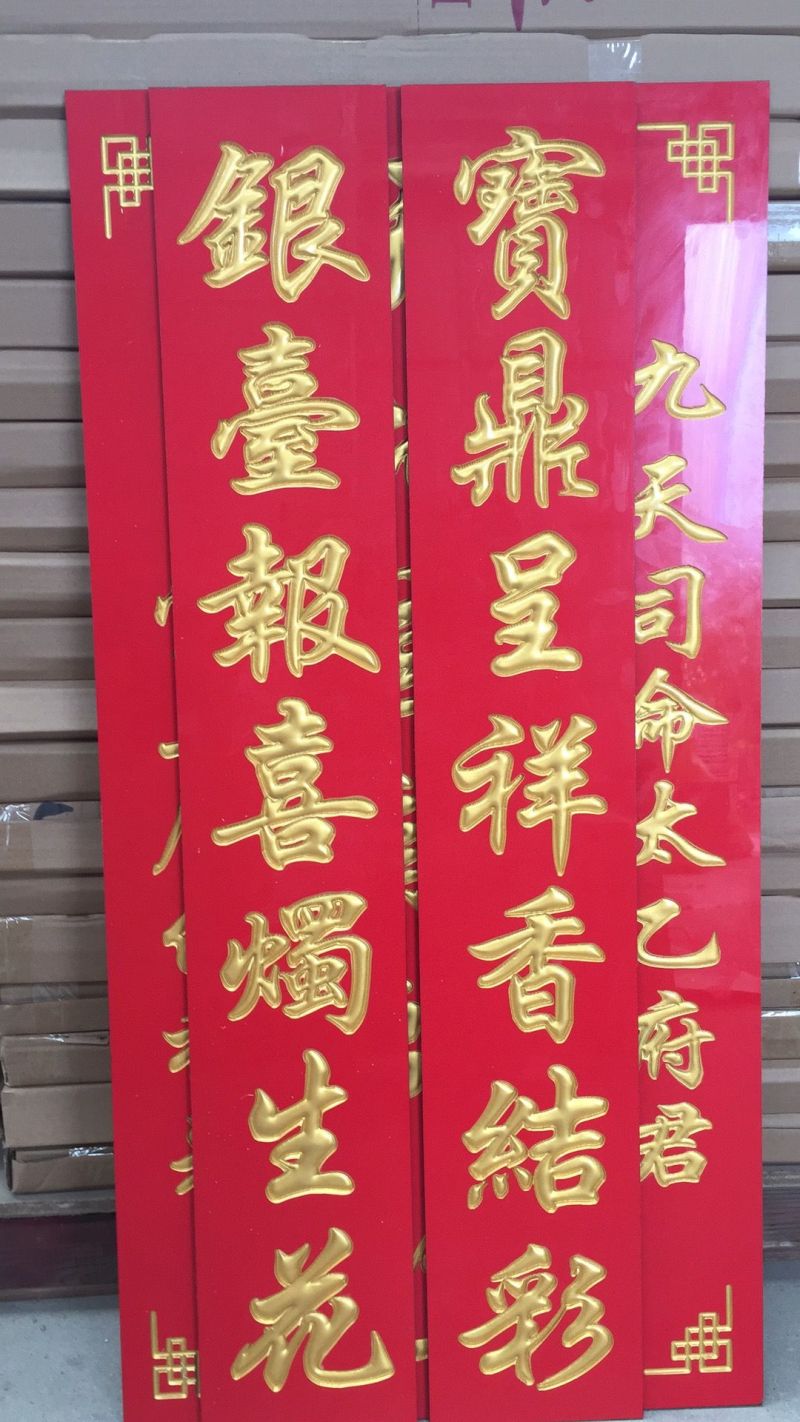 九天司命太乙府君
寶鼎呈祥香結彩
銀臺報喜燭生花